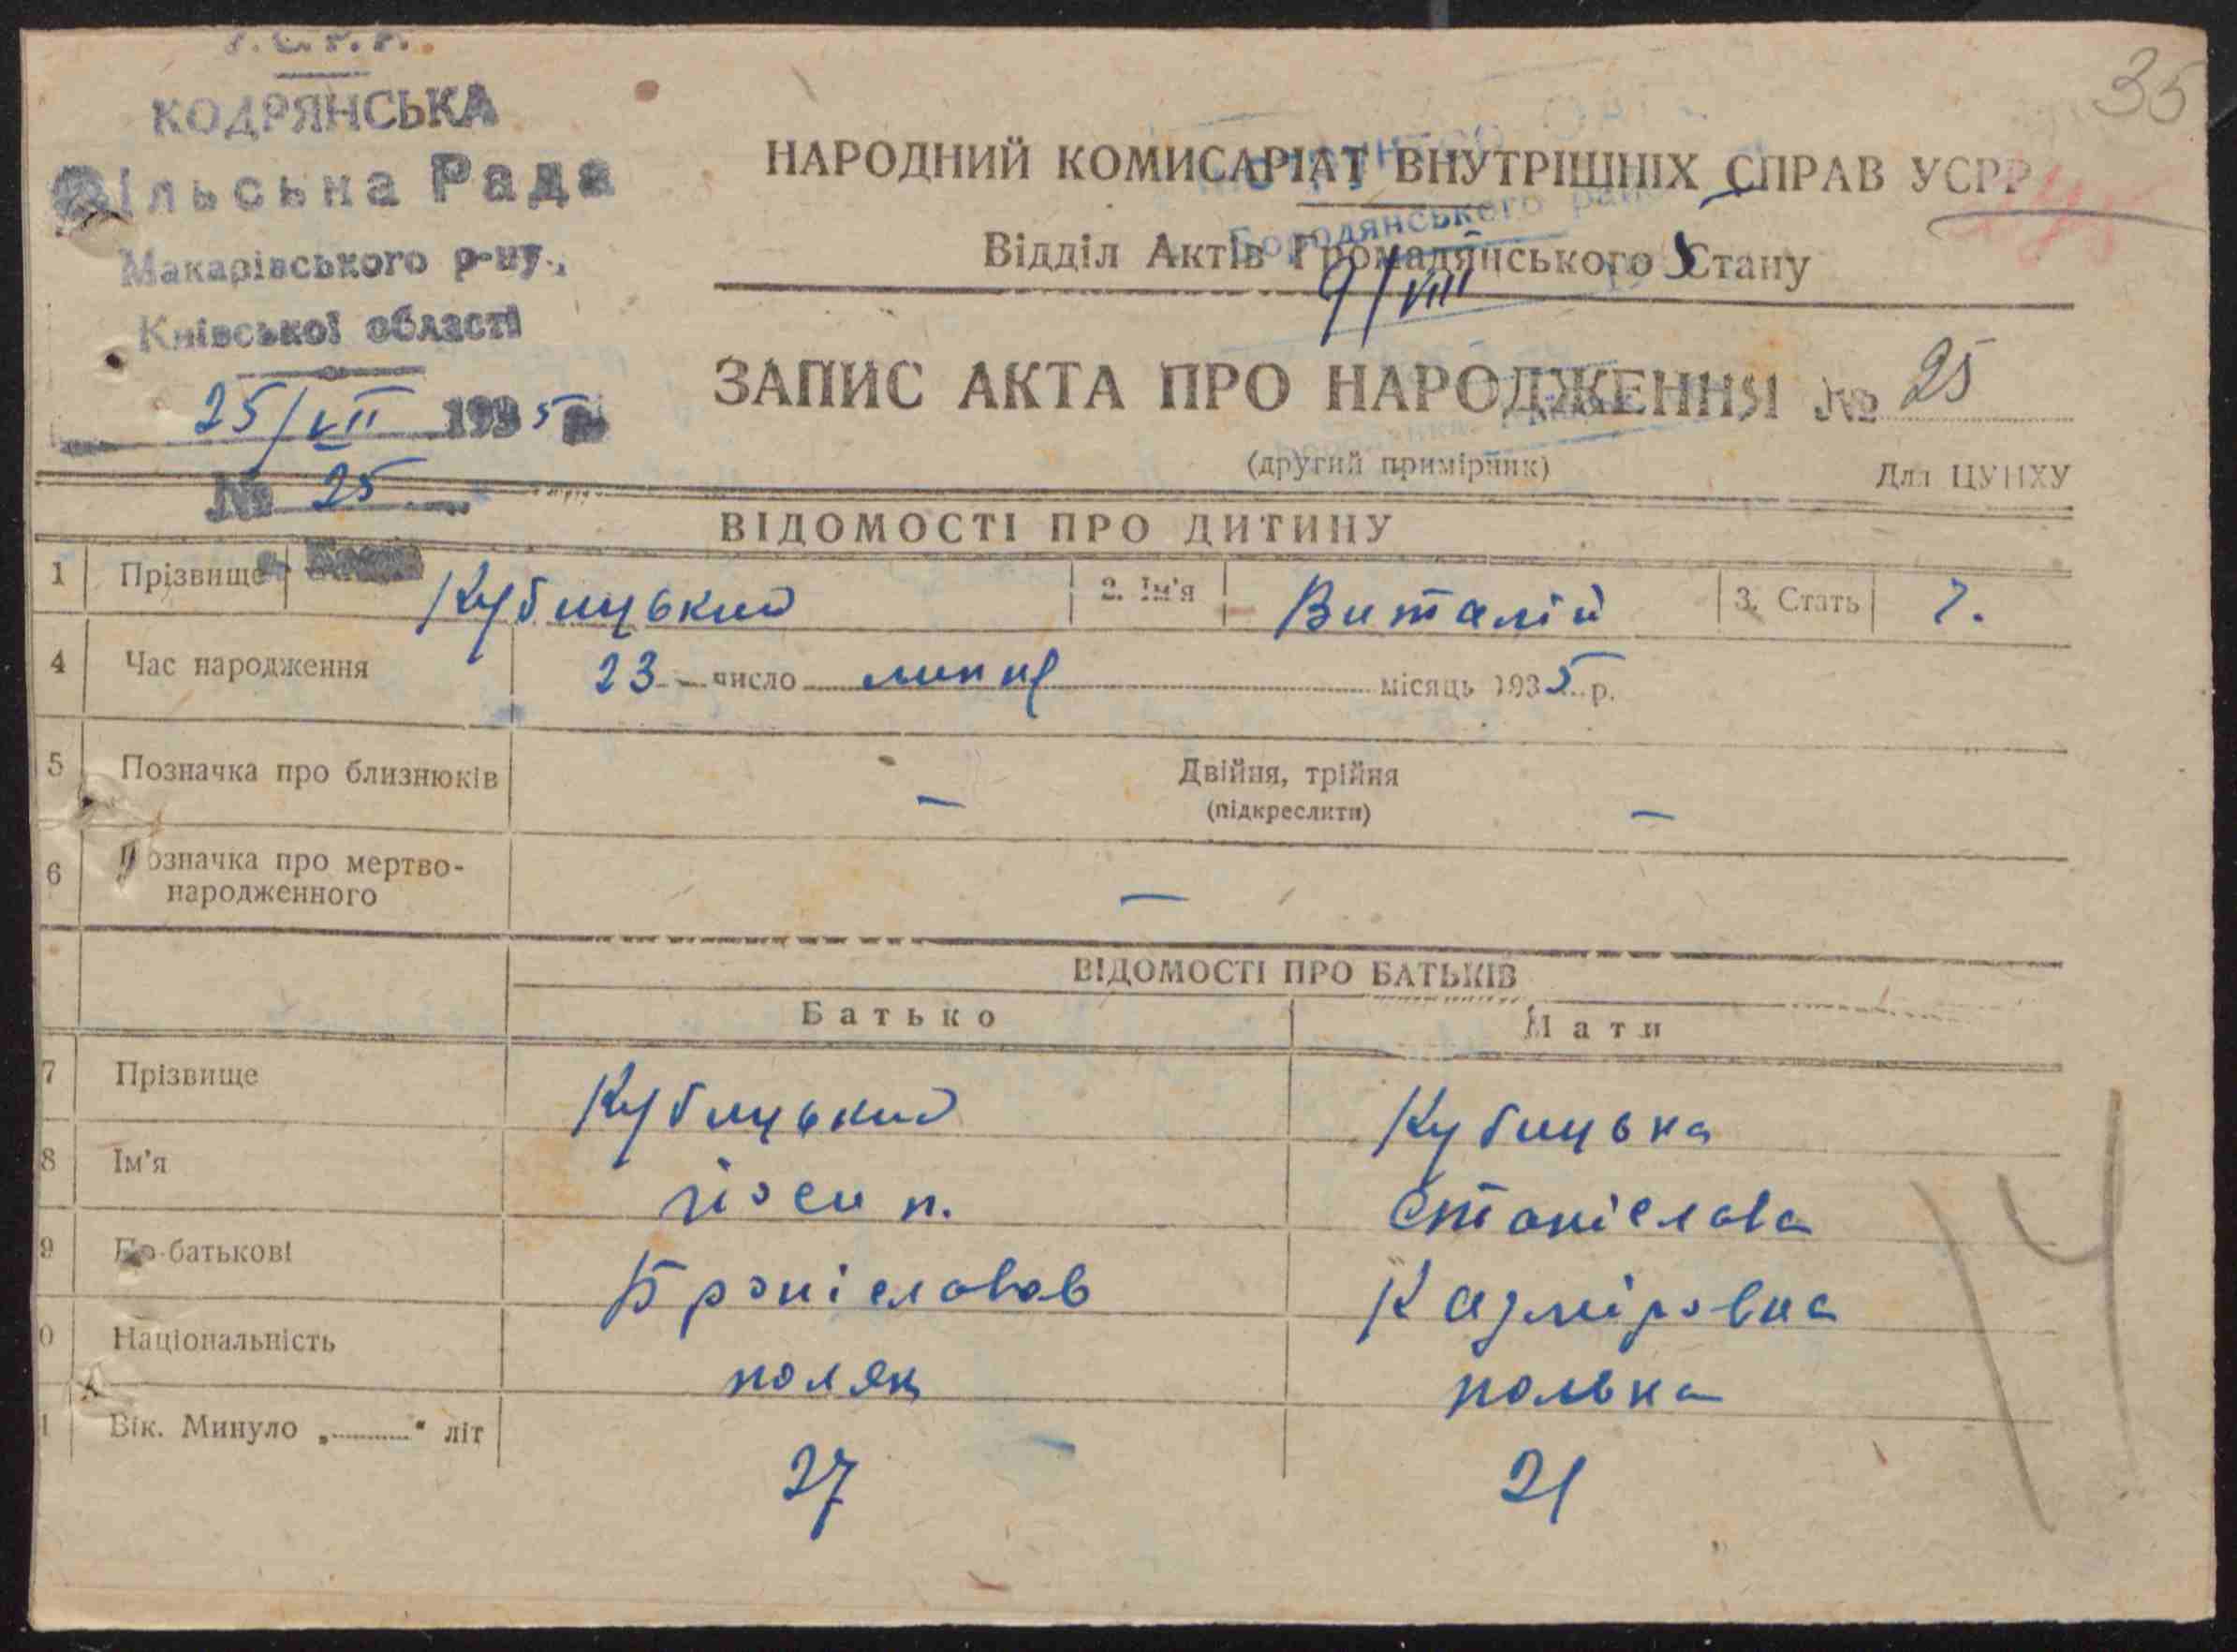 У.С.Р.Р.
КОДРЯНСЬКА
Сільська Рада
Макарівського р-ну,
Київської області
25/VII 1935 р.
№ 25
35
НАРОДНИЙ КОМИСАРІАТ ВНУТРІШНІХ СПРАВ УСРР
Бородянського
Відділ Актів Громадянського Стану
9/VIII
ЗАПИС АКТА ПРО НАРОДЖЕННЯ № 25
(другий примірник)
Для ЦУНХУ
ВІДОМОСТІ ПРО ДИТИНУ
1 Прізвище Кубицький 2. Ім'я Виталій 3. Стать ч.
4 Час народження 23 число липня місяць 1935 р.
5 Позначка про близнюків — Двійня, трійня —
(підкреслити)
6 Позначка про мертво-
народженного —
ВІДОМОСТІ ПРО БАТЬКІВ
Батько Мати
7 Прізвище Кубицький Кубицька
8 Ім'я йосип. Станіслава
9 По-батькові Броніславов Казміровна
0 Національність поляк полька
1 Вік. Минуло „..........“ літ 27 21